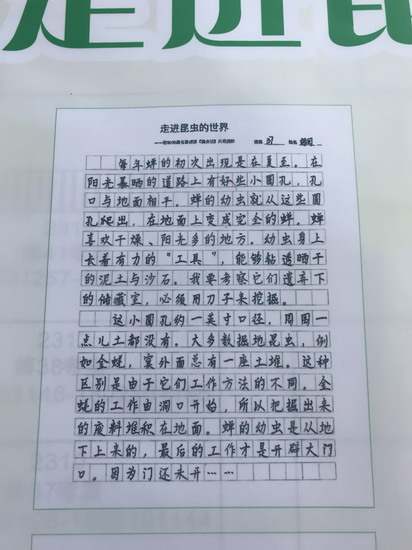 走进昆
走进昆虫的世界
班级 姓名
每年蝉的初次出现是在夏至。在
阳光暴晒的道路上有好些小圆孔，孔
口与地面相平。蝉的幼虫就从这些圆
孔爬出，在地面上变成完全的蝉。蝉
喜欢干燥、阳光多的地方。幼虫身上
长着有力的“工具”，能够钻透晒干
的泥土与沙石。我要考察它们遗弃下
的储藏室，必须用刀子来挖掘。
这小圆孔约一英寸口径，周围一
点儿土都没有。大多数掘地昆虫，例
如金蜣，窠外面总有一座土堆。这种
区别是由于它们工作方法的不同。金
蜣的工作由洞口开始，所以把掘出来
的废料堆积在地面。蝉的幼虫是从地
下上来的，最后的工作才是开辟大门
口。因为门还未开……